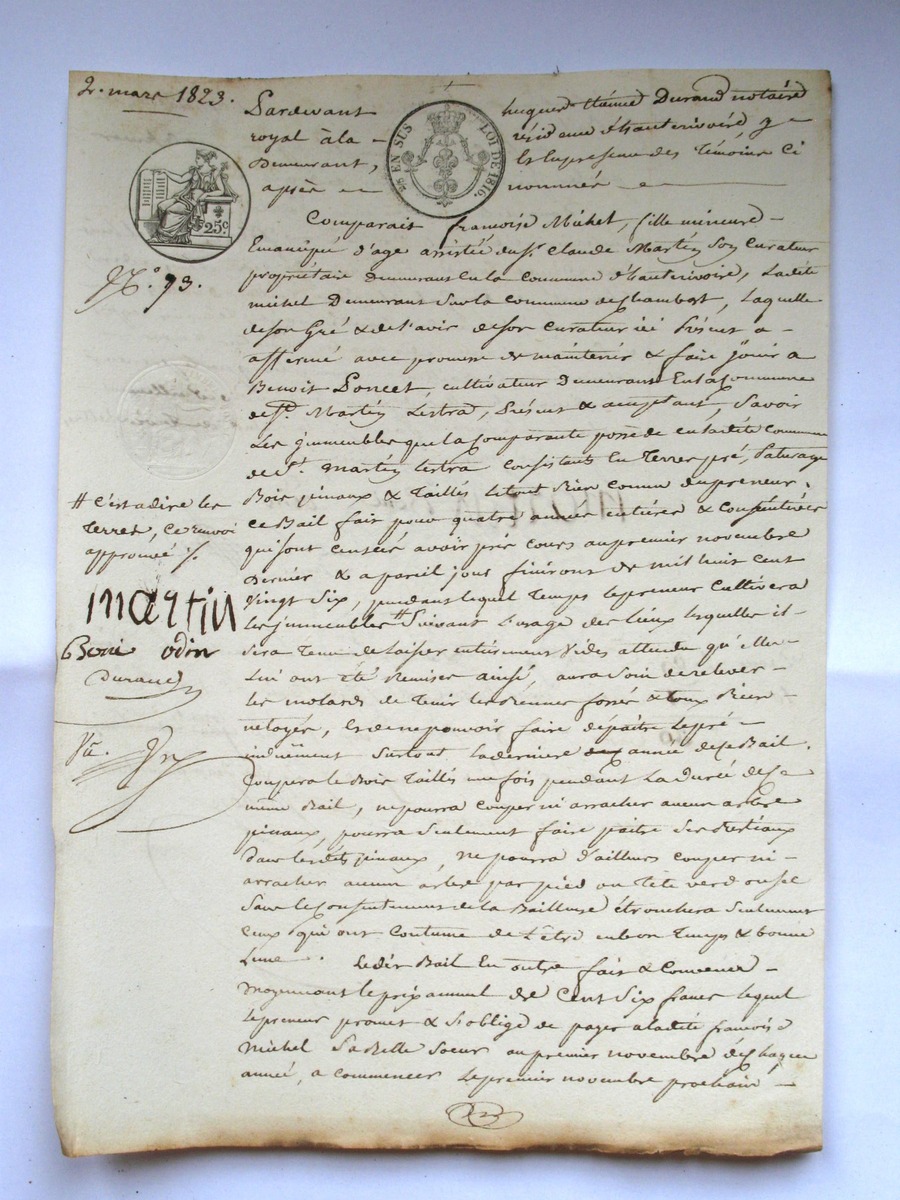 2. mars 1823.
Pardevant hugues Durand notaire
royal à la résidence d'hauterivoire, y
Demeurant, En presence des Témoins Ci
après nommés
EN SUS LOI DE 1816.
25c
N°. 93.
Comparait françoise Michel, fille mineure
Emancipée d'age assistée du Sr. Claude Martin Son Curateur
propriétaire Demeurant En la Commune d'hauterivoire, Ladite
michel Demeurant Sur la Commune de Chambost, Laquelle
de Son Gré & de l'avis de Son Curateur ici Présent a
affermé avec promesse de maintenir & faire jouir a
Benoit Poncet, cultivateur Demeurant En la Commune
de St. Martin Lestra, Présent & acceptant, Savoir
Les immeubles que la Comparante possède en ladite Commune
de St. Martin Lestra Consistants En Terres, pré, Paturage
Bois pinaux & Taillis Le tout Bien Connu du preneur.
Ce Bail fait pour quatre années entières & Consécutives
qui sont Censées avoir pris Cours au premier novembre
Dernier & a pareil jour finiront de mil huit Cent
Vingt Six, pendant lequel Temps le preneur Cultivera
les immeubles # Suivant l'usage des Lieux lesquelles il
Sera Tenu de laisser entièrement Vides attendu qu'elles
Lui ont été Remises ainsi, aura Soin de relever
les molards de Tenir les fossés & le tout Bien
netoyés, & de ne pouvoir faire dépaitre le pré
indûment Surtout la dernière année de ce Bail.
Coupera le Bois Taillis une fois pendant La durée de ce
même Bail, ne pourra couper ni arracher aucun arbre
pinaux, pourra Seulement faire paitre Ses Bestiaux
dans les dits pinaux, ne pourra d'ailleurs couper ni
arracher aucun arbre par pied ou Tête verd ou sec
Sans le Consentement de la Bailleuse étronchera Seulement
Ceux qui ont Coutume de L'être en bon Temps & bonne
Lune. Ledit Bail En outre fait & Convenu
Moyennant le prix annuel de Cent Six francs lequel
le preneur promet & S'oblige de payer a ladite françoise
Michel Sa Belle Soeur au premier novembre de chaque
année, a commencer le premier novembre prochain
# C'est a dire les
Terres, Ce renvoi
approuvé /.
martin
odin
Durand